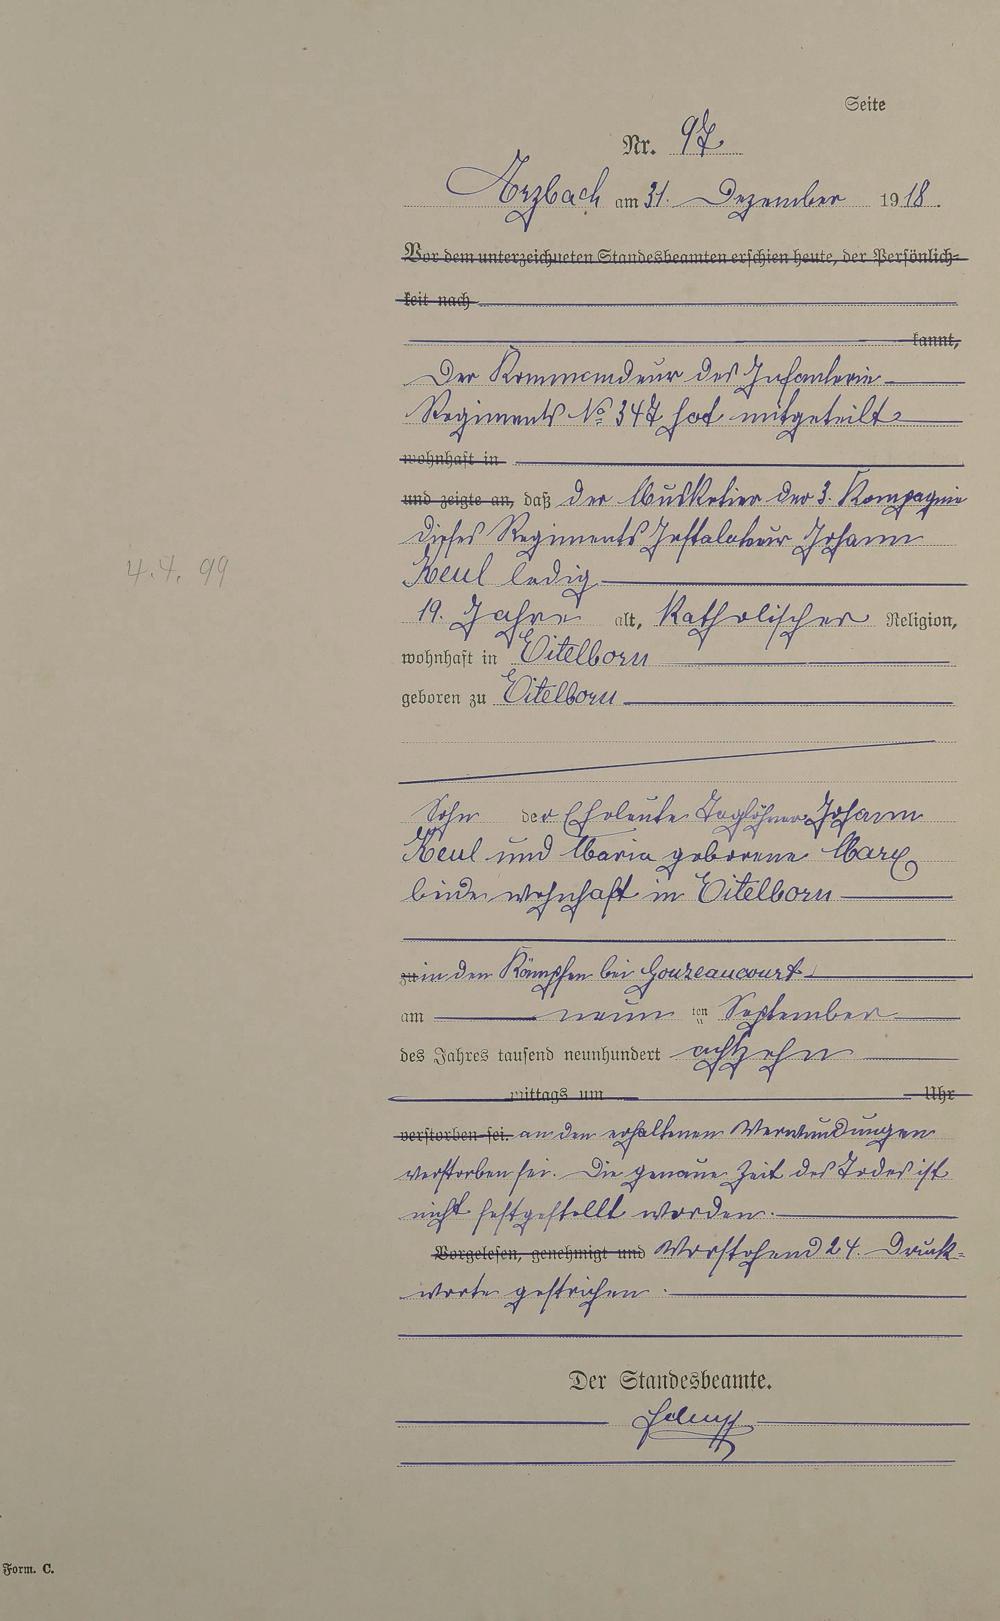 Seite
Nr. 97
Arzbach am 31. Dezember 1918.
Vor dem unterzeichneten Standesbeamten erschien heute, der Persönlich-
keit nach
kannt,
Der Kommandeur des Infanterie
Regiments No 347 hat mitgeteilt
wohnhaft in
und zeigte an, daß der Musketier der 3. Kompagnie
dieses Regiments Installateur Johann
Keul ledig
4.4.99
19. Jahre alt, Katholischer Religion,
wohnhaft in Eitelborn
geboren zu Eitelborn
Sohn der Eheleute Taglöhner Johann
Keul und Maria geborene Marx
beide wohnhaft in Eitelborn
zu in den Kämpfen bei Gouzeaucourt
am neun ten September
des Jahres tausend neunhundert achtzehn
mittags um Uhr
verstorben sei. an den erhaltenen Verwundungen
verstorben sei. Die genaue Zeit des Todes ist
nicht festgestellt worden.
Vorgelesen, genehmigt und Vorstehend 24. Druck-
worte gestrichen.
Der Standesbeamte.
Form. C.